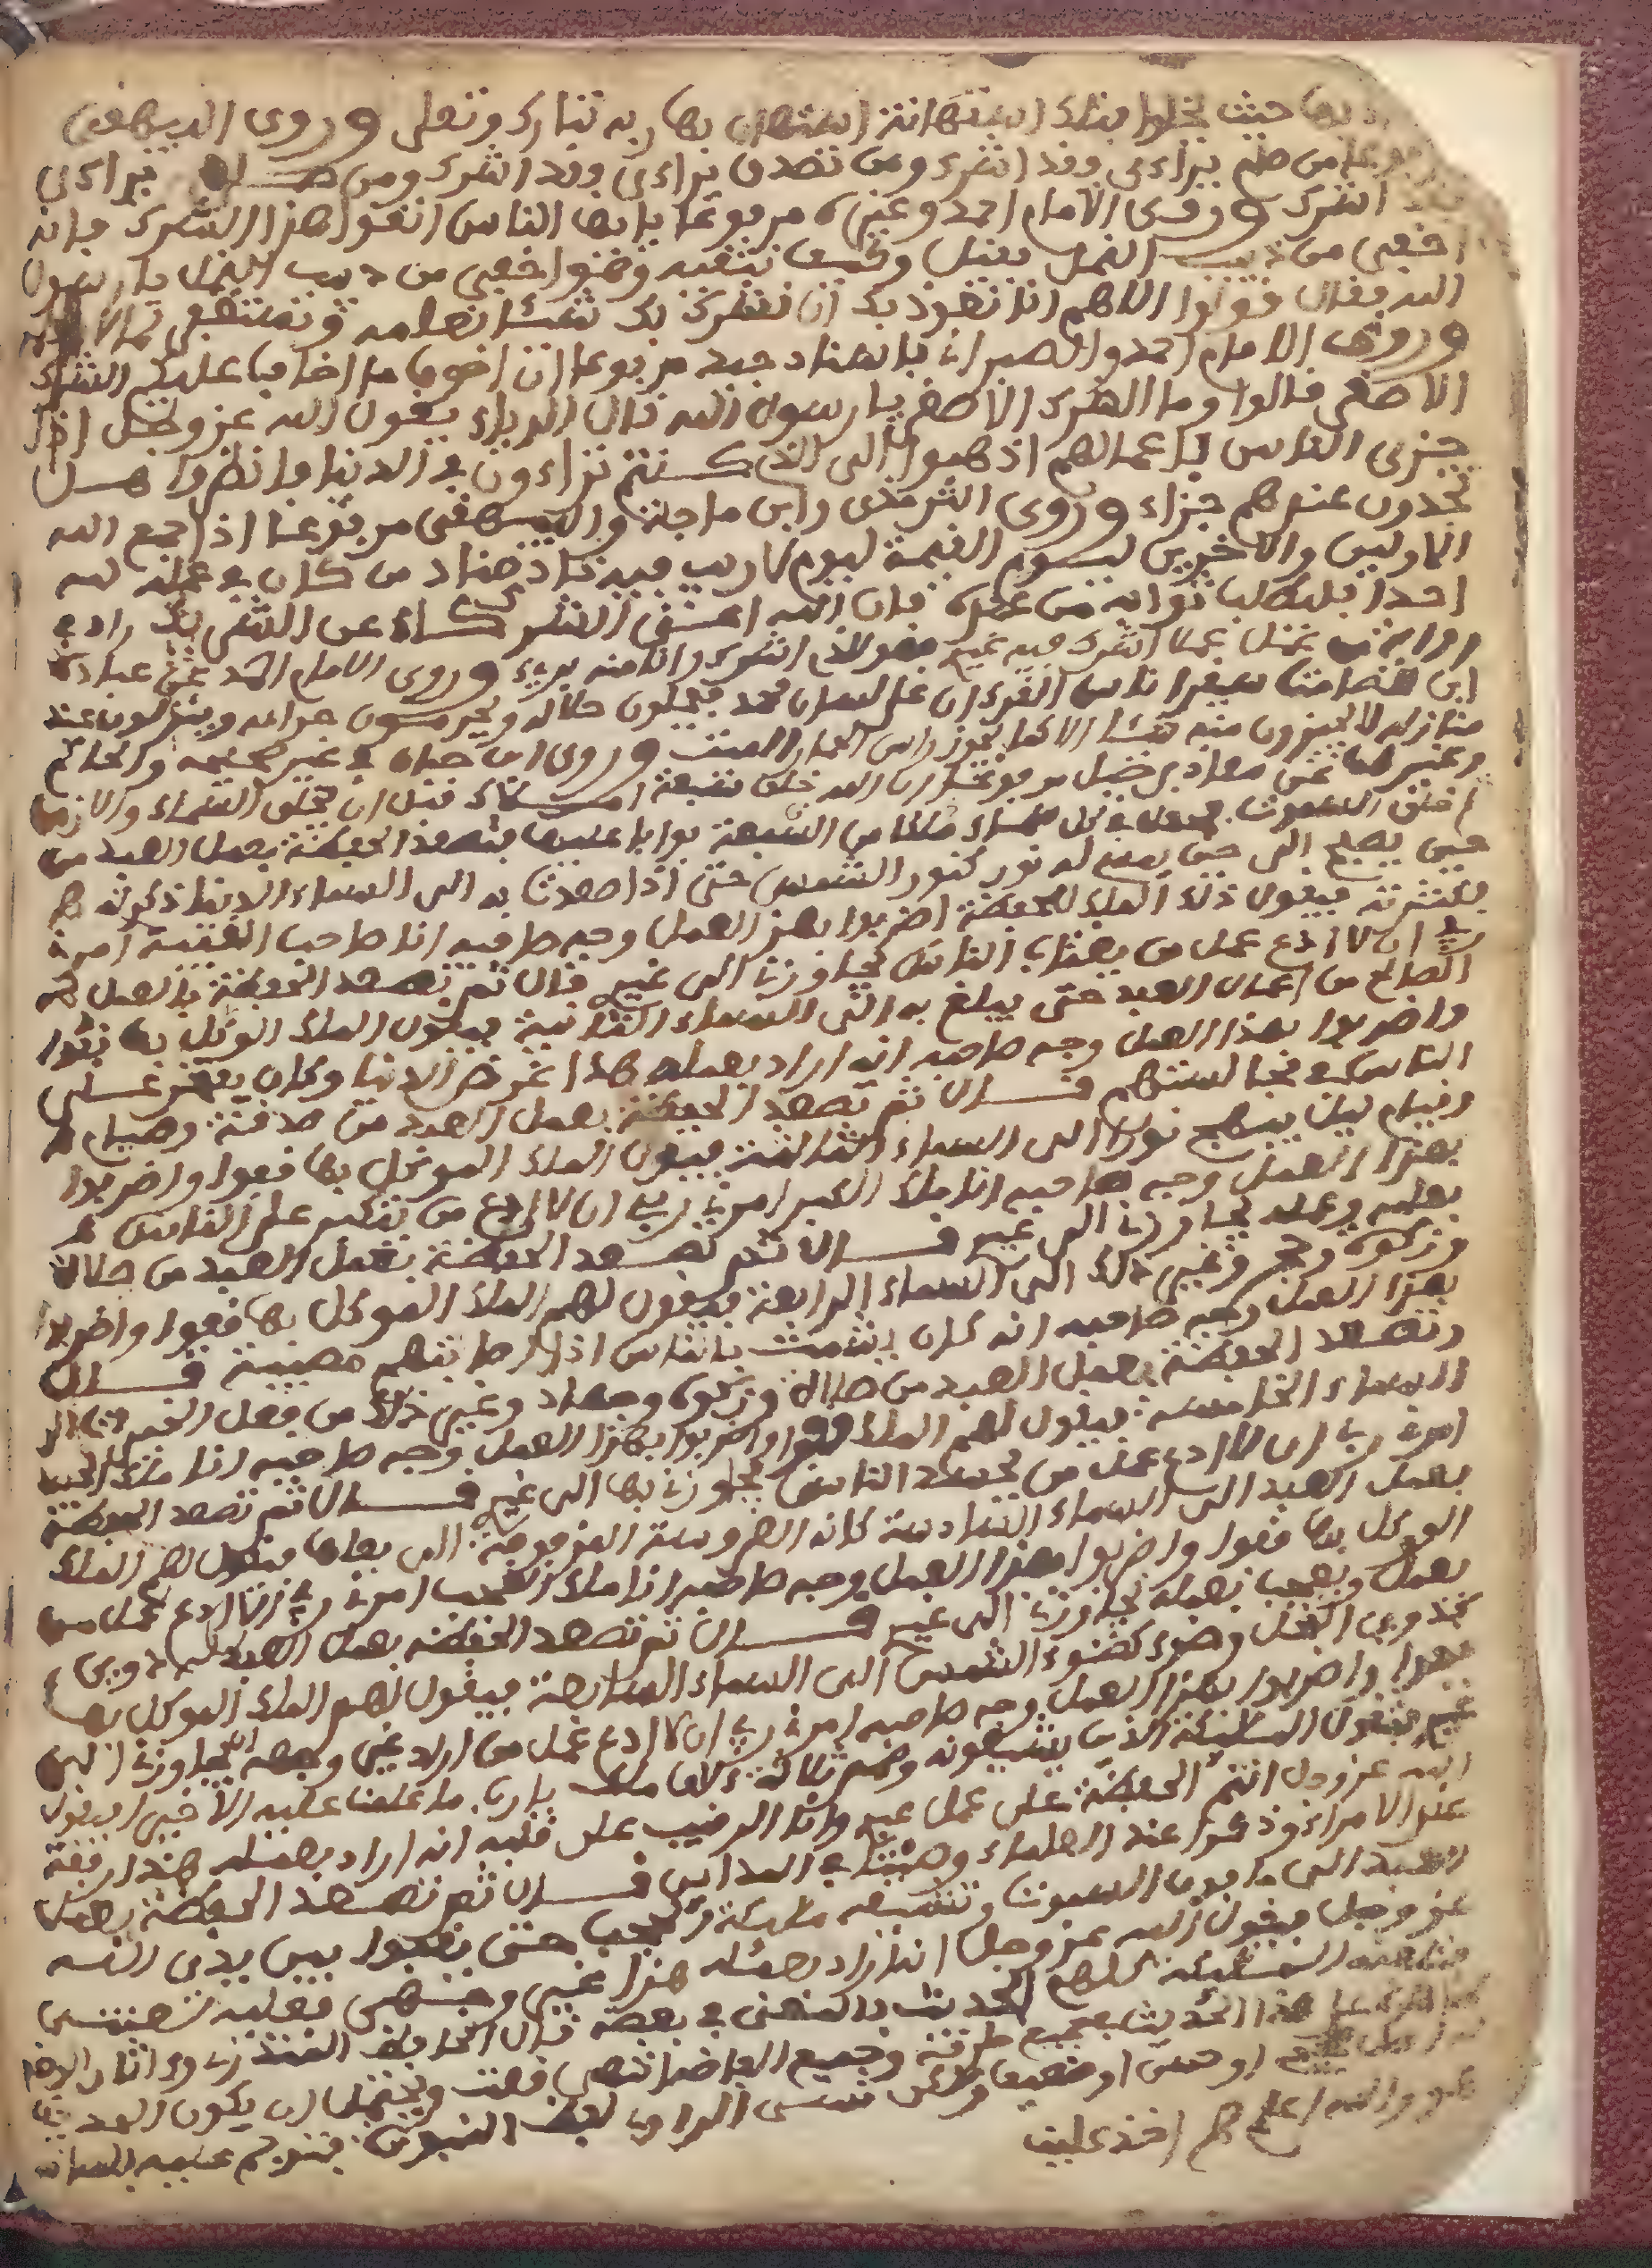 بها حيث يخلوا فتلك استهانة استهان بها ربه تبارك وتعلى وروى البيهقي
من صام يراءى وفد اشرك ومن تصدق يراءى وفد اشرك ومن صلى يراءى
اشرك وروى الامام احمد وغيره مرفوعا يا ايها الناس اتقوا هذا الشرك فانه
اخفى من دبيب النمل فقيل وكيف نتقيه وهو اخفى من دبيب النمل يا رسول
الله فقال قولوا اللهم انا نعوذ بك ان نشرك بك شيئا نعلمه ونستغفرك لما لا نعلمه
وروى الامام احمد والطبراني باسناد جيد مرفوعا ان اخوف ما اخاف عليكم الشرك
الاصغر قالوا وما الشرك الاصغر يا رسول الله قال الرياء يقول الله عز وجل اذا
جزى الناس باعمالهم اذهبوا الى الذي كنتم تراءون في الدنيا فانظروا هل
تجدون عندهم جزاء وروى الترمذى وابن ماجة والبيهقي مرفوعا اذا جمع الله
الاولين والاخرين ليوم القيمة ليوم لا ريب فيه نادى مناد من كان في عمله لله
احدا فليطلب ثوابه من عنده فان الله اغنى الشركاء عن الشرك زاد في
رواية من عمل عملا اشرك فيه غيري فهو للذي اشرك وانا منه بريء وروى الامام احمد عن عبادة
ابن الصامت سيقرا ناس القرءان على لسان محمد فيحلون حلاله ويحرمون حرامه وينزلون عند
منازله لا يحوزون منه شيئا الا كما يحوز راس الحمار الميت وروى ابن حبان في غير صحيحه والحاكم
وغيرهما عن معاذ بن جبل مرفوعا ان الله خلق سبعة املاك قبل ان يخلق السماء والارض
ثم خلق السموت فجعل في كل سماء ملكا من السبعة بوابا عليها فتصعد الحفظة بعمل العبد من
حين يصبح الى حين يمسي له نور كنور الشمس حتى اذا صعدت به الى السماء الدنيا ذكرته
فكثرته فيقول ذلك الملك للحفظة اضربوا بهذا العمل وجه صاحبه انا صاحب الغيبة امرني
ربي ان لا ادع عمل من يغتاب الناس يجاوزني الى غيري قال ثم تصعد الحفظة بالعمل
الصالح من اعمال العبد حتى يبلغ به الى السماء الثانية فيقول الملك الموكل بها قفوا
واضربوا بهذا العمل وجه صاحبه انه اراد بعمله هذا عرض الدنيا وكان يفتخر على
الناس في مجالستهم قال ثم تصعد الحفظة بعمل العبد من صدقة وصيام
وقيام ليل يبتهج نورا الى السماء الثالثة فيقول الملك الموكل بها قفوا واضربوا
بهذا العمل وجه صاحبه انا ملك الكبر امرني ربي ان لا ادع من تكبر على الناس
بعلمه وعمله يجاوزني الى غيري قال ثم تصعد الحفظة بعمل العبد من صلاة
وزكوة وحج وغيره ذلك الى السماء الرابعة فيقول لهم الملك الموكل بها قفوا واضربوا
بهذا العمل وجه صاحبه انه كان يشمت بالناس اذا اصابتهم مصيبة قال
وتصعد الحفظة بعمل العبد من صلاة وزكوة وجهاد وغير ذلك من فعل الخير الى
السماء الخامسة فيقول لهم الملك قفوا واضربوا بهذا العمل وجه صاحبه انا ملك الحسد
امرني ربي ان لا ادع عمل من يحسد الناس يجاوزني بها الى غيري قال ثم تصعد الحفظة
بعمل العبد الى السماء السادسة كانه العروسة المزفوفة الى بعلها فيقول لهم الملك
الموكل بها قفوا واضربوا بهذا العمل وجه صاحبه انا ملك العجب امرني ربي ان لا ادع عمل من
يعمل ويعجب بعمله يجاوزني الى غيري قال ثم تصعد الحفظة بعمل العبد له دوي
كدوي النحل وضوء كضوء الشمس الى السماء السابعة فيقول لهم الملك الموكل بها
قفوا واضربوا بهذا العمل وجه صاحبه امرني ربي ان لا ادع عمل من اراد غير وجه الله يجاوزني الى
غيري فتقول الملئكة الذين يشيعونه وهم ثلاثة ءالاف ملك يا ربنا ما علمنا عليه الا خيرا فيقول
الله عز وجل انتم الحفظة على عمل عبدي وانا الرقيب على قلبه انه اراد بعمله هذا رفعة
عند الامراء وذكرا عند العلماء وصيتا في المداين قال ثم تصعد الحفظة بعمل
العبد الى ما فوق السموت وتشيعه ملئكة الحجب حتى يقفوا بين يدى الله
عز وجل فيقول الله عز وجل انه اراد بعمله هذا غيري وجهي فعليه لعنتي
الملئكة كلهم الحديث بالمعنى في بعضه قال الحافظ المنذري واثار الوضع
على هذا الحديث بجميع طرقه وجميع الفاظه انتهى قلت ويحتمل ان يكون الحديث
صحيح او حسن او ضعيف ولكن نسي الراوي لفظ النبوة فترجم عنه بلسانه
والله اعلم اخذ علينا